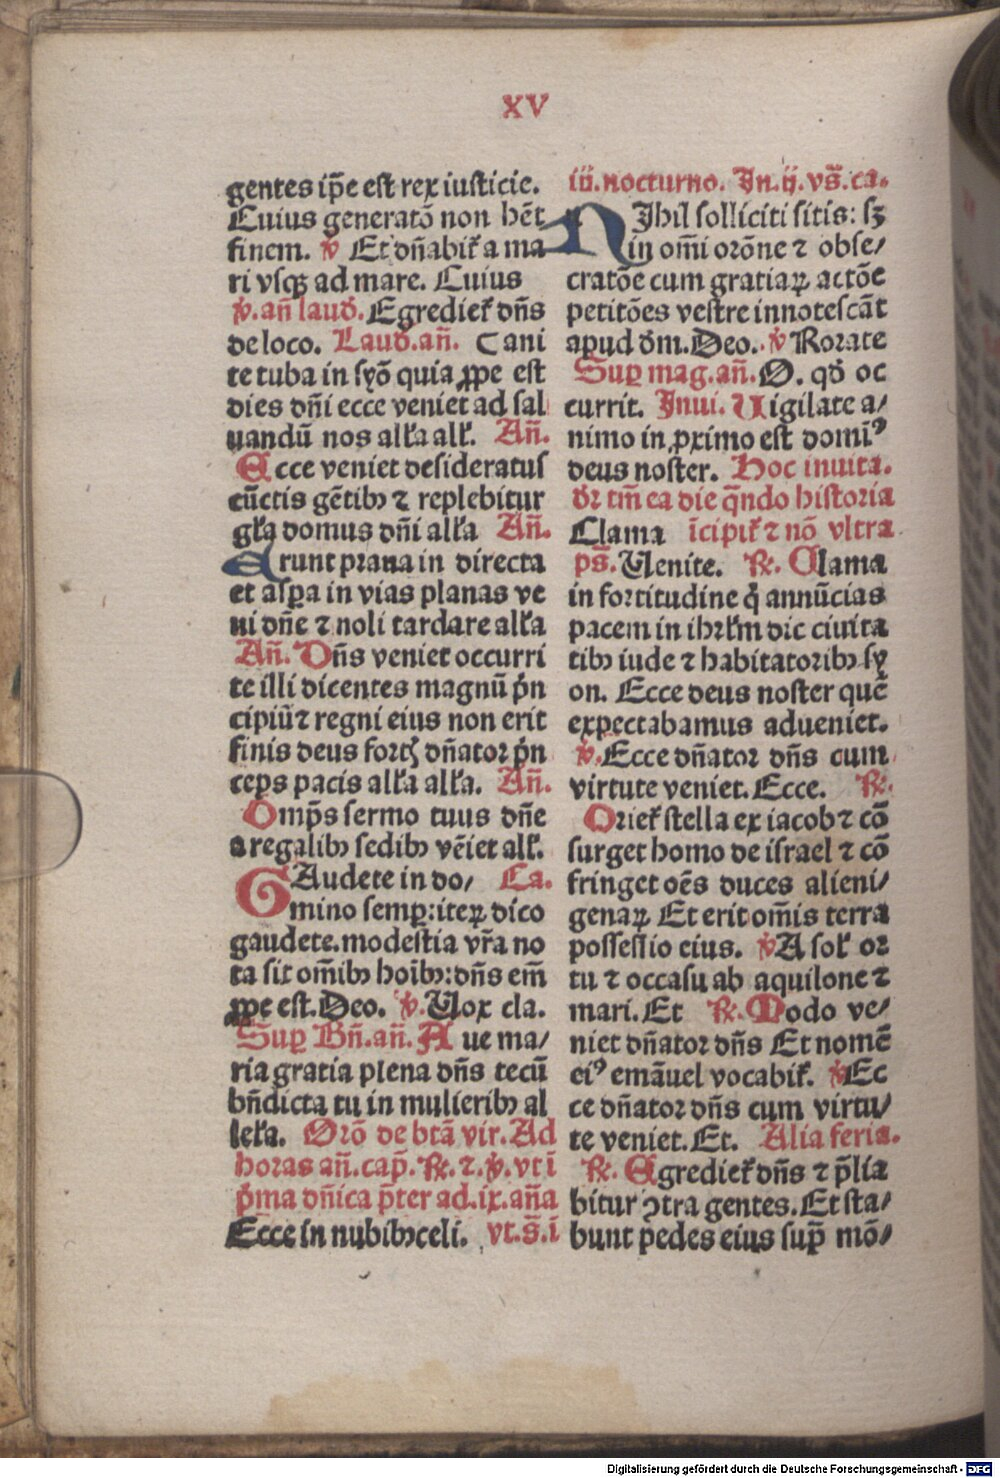 XV
gentes ip̄e est rex iusticie.
Cuius generatō non hēt
finem. ꝟ Et dn̄abiť a ma
ri vsqꝫ ad mare. Cuius
ꝟ. an̄ laud. Egredieť dn̄s
de loco. Laud. an̄. Cani
te tuba in syō quia ꝓpe est
dies dn̄i ecce veniet ad sal
uandū nos all'a all'. An̄.
Ecce veniet desideratus
cūctis gētibꝫ ⁊ replebitur
gl'a domus dn̄i all'a An̄.
Erunt praua in directa
et asꝑa in vias planas ve
ni dn̄e ⁊ noli tardare all'a
An̄. Dn̄s veniet occurri
te illi dicentes magnū pn̍
cipiū ⁊ regni eius non erit
finis deus forť dn̄ator pn̍
ceps pacis all'a all'a. An̄.
Omp̄s sermo tuus dn̄e
a regalibꝫ sedibꝫ vēiet all'.
GAudete in do/ Ca.
mino semꝑ: iteꝝ dico
gaudete. modestia vr̄a no
ta sit om̄ibꝫ hoībꝫ: dn̄s em̄
ꝓpe est. Deo. ꝟ. Vox cla.
Suꝑ Bn̄. an̄. Aue ma/
ria gratia plena dn̄s tecū
bn̄dicta tu in mulieribꝫ al
lel'a. Orō de btā vir. Ad
horas an̄. cap̄. ℟. ⁊. ꝟ. vt ī
p̍ma dn̄ica p̄ter ad. ix. an̄a
Ecce in nubibꝫ celi. vt. s̄. ī
iii. nocturno. In. ij. vs̄. ca.
NIhil solliciti sitis: sꝫ
in om̄i orōne ⁊ obse/
cratōe cum gratiaꝝ actōe
petitōes vestre innotescāt
apud dm̄. Deo. ꝟ Rorate
Suꝑ mag. an̄. O. qd̄ oc
currit. Inui. Vigilate a/
nimo in ꝓximo est domī⁹
deus noster. Hoc inuita.
dr̄ tm̄ ea die qn̄do historia
Clama īcipiť ⁊ nō vltra
ps̄. Venite. ℟. Clama
in fortitudine q̍ annūcias
pacem in ihrl'm dic ciuita
tibꝫ iude ⁊ habitatoribꝫ sy
on. Ecce deus noster quē
expectabamus adueniet.
ꝟ. Ecce dn̄ator dn̄s cum
virtute veniet. Ecce. ℟.
Orieť stella ex iacob ⁊ cō
surget homo de israel ⁊ cō
fringet oēs duces alieni/
genaꝝ Et erit om̄is terra
possessio eius. ꝟ A sol' or
tu ⁊ occasu ab aquilone ⁊
mari. Et ℟. Modo ve/
niet dn̄ator dn̄s Et nomē
ei⁹ emāuel vocabiť. ꝟ Ec
ce dn̄ator dn̄s cum virtu/
te veniet. Et. Alia feria.
℟. Egredieť dn̄s ⁊ p̄lia
bitur ꝯtra gentes. Et sta/
bunt pedes eius sup̄ mō/
Digitalisierung gefördert durch die Deutsche Forschungsgemeinschaft - DFG